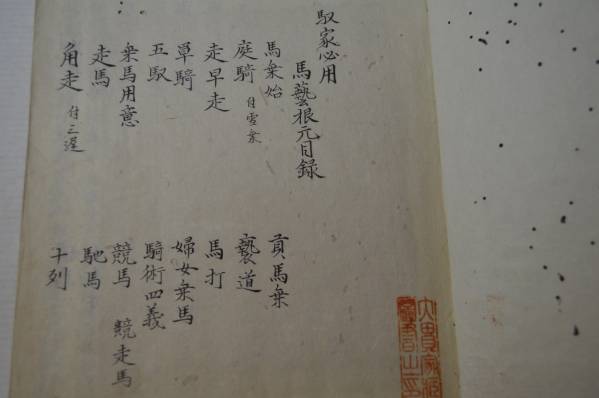 馭家必用
馬藝根元目録
馬乗始
貢馬乗
庭騎 付雪乗
褻道
走早走
馬打
単騎
婦女乗馬
五馭
騎術四義
乗馬用意
競馬 競走馬
走馬
馳馬
角走 付三遅
十列